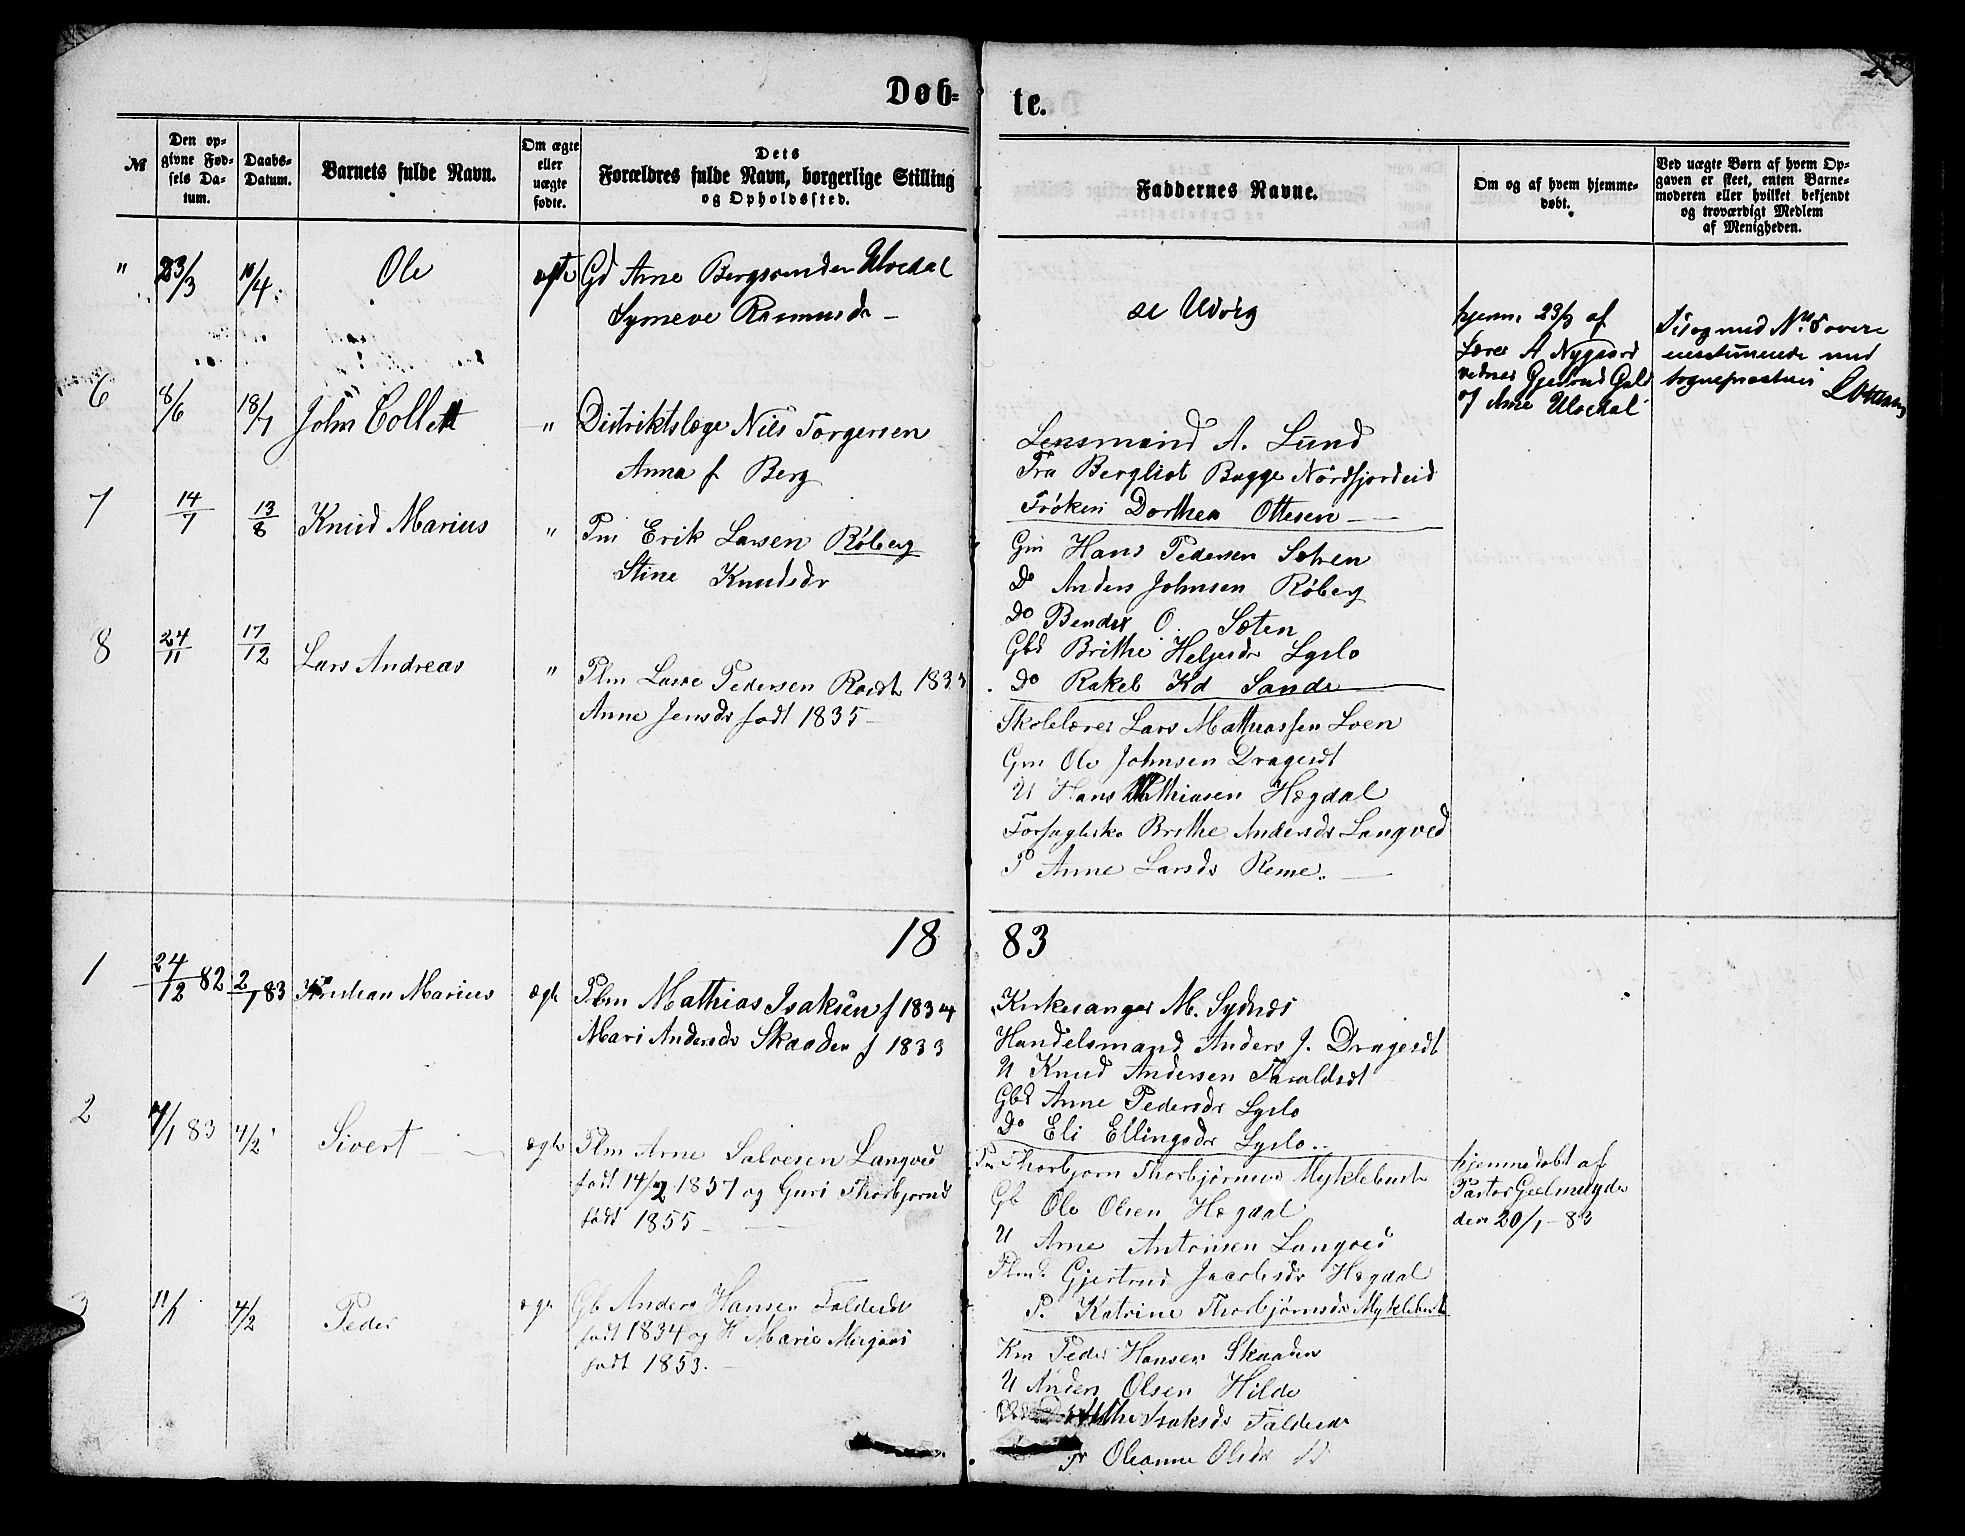 Døb-
te.
№
Den op-
givne Fød-
sels Da-
tum.
Daabs-
Datum.
Barnets fulde Navn.
Om ægte
eller
uægte
fødte.
Dets
Forældres fulde Navn, borgerlige Stilling
og Opholdssted.
Faddernes Navne.
Om og af hvem hjemme-
døbt.
Ved uægte Børn af hvem Op-
gaven er skeet, enten Barne-
moderen eller hvilket bekjendt
og troværdigt Medlem
af Menigheden.
"
23/3
10/4
Ole
ægte
Gd Arne Bergsvendsen Ulvedal
Synneve Rasmusdr -
hjem: 23/3 af
Lærer A Nygaard
Arne Ulvedal
6
8/6
18/7
John Collett
"
Distriktslæge Nils Torgersen
Anna f Berg
Lensmand A. Lund
Fru Bergliot Bugge Nordfjordeid
Frøken Dorthea Ottesen
7
14/7
13/8
Knud Marius
"
Pm Erik Larsen Røberg
Stine Knudsdr
Gm Hans Pedersen Sæten
Do Anders Johnsen Røberg
Do Bendix O. Sæten
Gbd Brithe Helgesdr Lyslo
Do Rakel Kd Sande
8
24/11
17/12
Lars Andreas
"
Plm Lasse Pedersen Raadt 1833
Anne Jensdr født 1835
Skolelærer Lars Mathiassen Loen
Gm Ole Johnsen Dragesdt
U Hans Mathiasen Hægdal
Brithe Andersdr Langved
P Anne Larsdr Reme
18
83
1
24/12 82
2/1 83
Kristian Marius
ægte
Plm Mathias Isaksen f 1834
Mari Andersdr Skaaden f 1833
Kirkesanger M. Sydnes
Handelsmand Anders J. Dragesdt
U Knud Andersen Taraldsdt
Gbd Anne Pedersdr Lyslo
Do Eli Ellingsdr Lyslo
2
7/1 83
4/2
Sivert
ægte
Plm Arne Salvesen Langved
født 14/2 1837 og Guri Thorbjørnsd
født 1855
Pm Thorbjørn Thorbjørnsen Myklebust
Gb Ole Olsen Hægdal
U Arne Antonsen Langved
Plmd. Gjertrud Jacobsdr Hægdal
P. Katrine Thorbjørnsdr Myklebust
hjemmedøbt af
Pastor Geelmuyden
den 20/1 - 83
3
11/1
4/2
Peder
ægte
Gb Anders Hansen Taldesdt
født 1834 og H Marie
født 1853.
Km Peder Hansen Skaaden
U Anders Olsen Hilde
Isaksdr Taldesdt
P Oleanne Olsdr